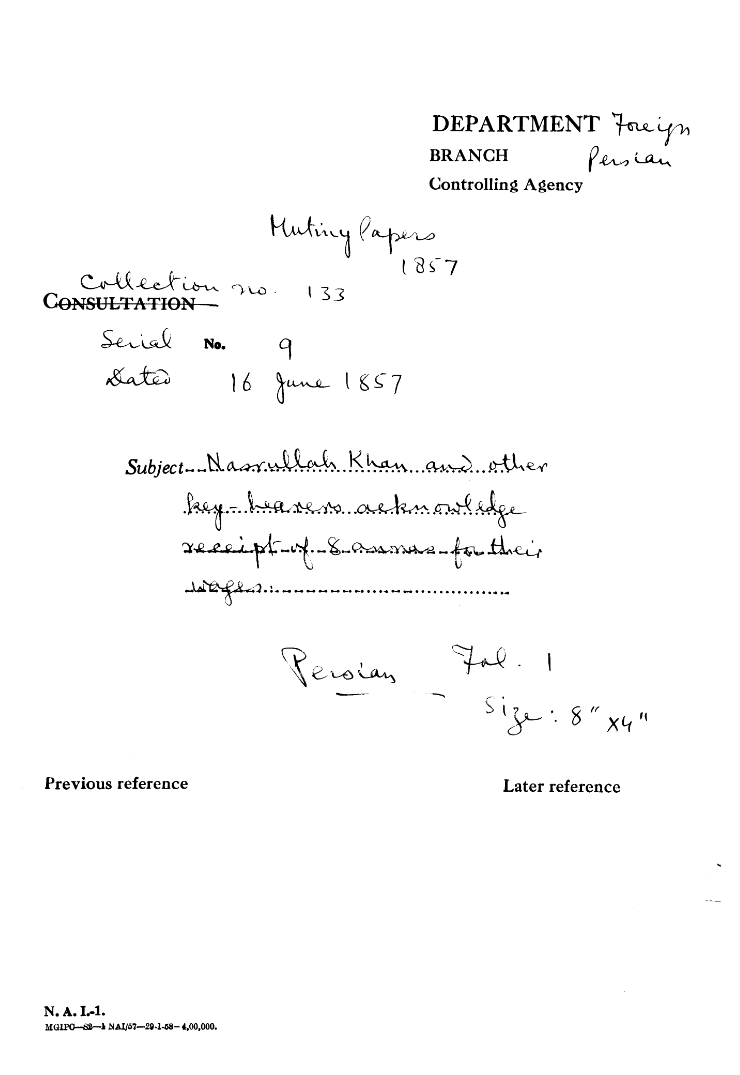 DEPARTMENT Foreign
BRANCH Persian
Controlling Agency
Mutiny Papers
1857
Collection no. 133
CONSULTATION
Serial No. 9
Dated 16 June 1857
Subject Nasrullah Khan and other
key-bearers acknowledge
receipt of 8 annas for their
wages.
Persian Fol. 1
Size: 8" x4"
Previous reference Later reference
N. A. I.-1.
MGIPC—S2—1 NAI/57—29-1-58—4,00,000.